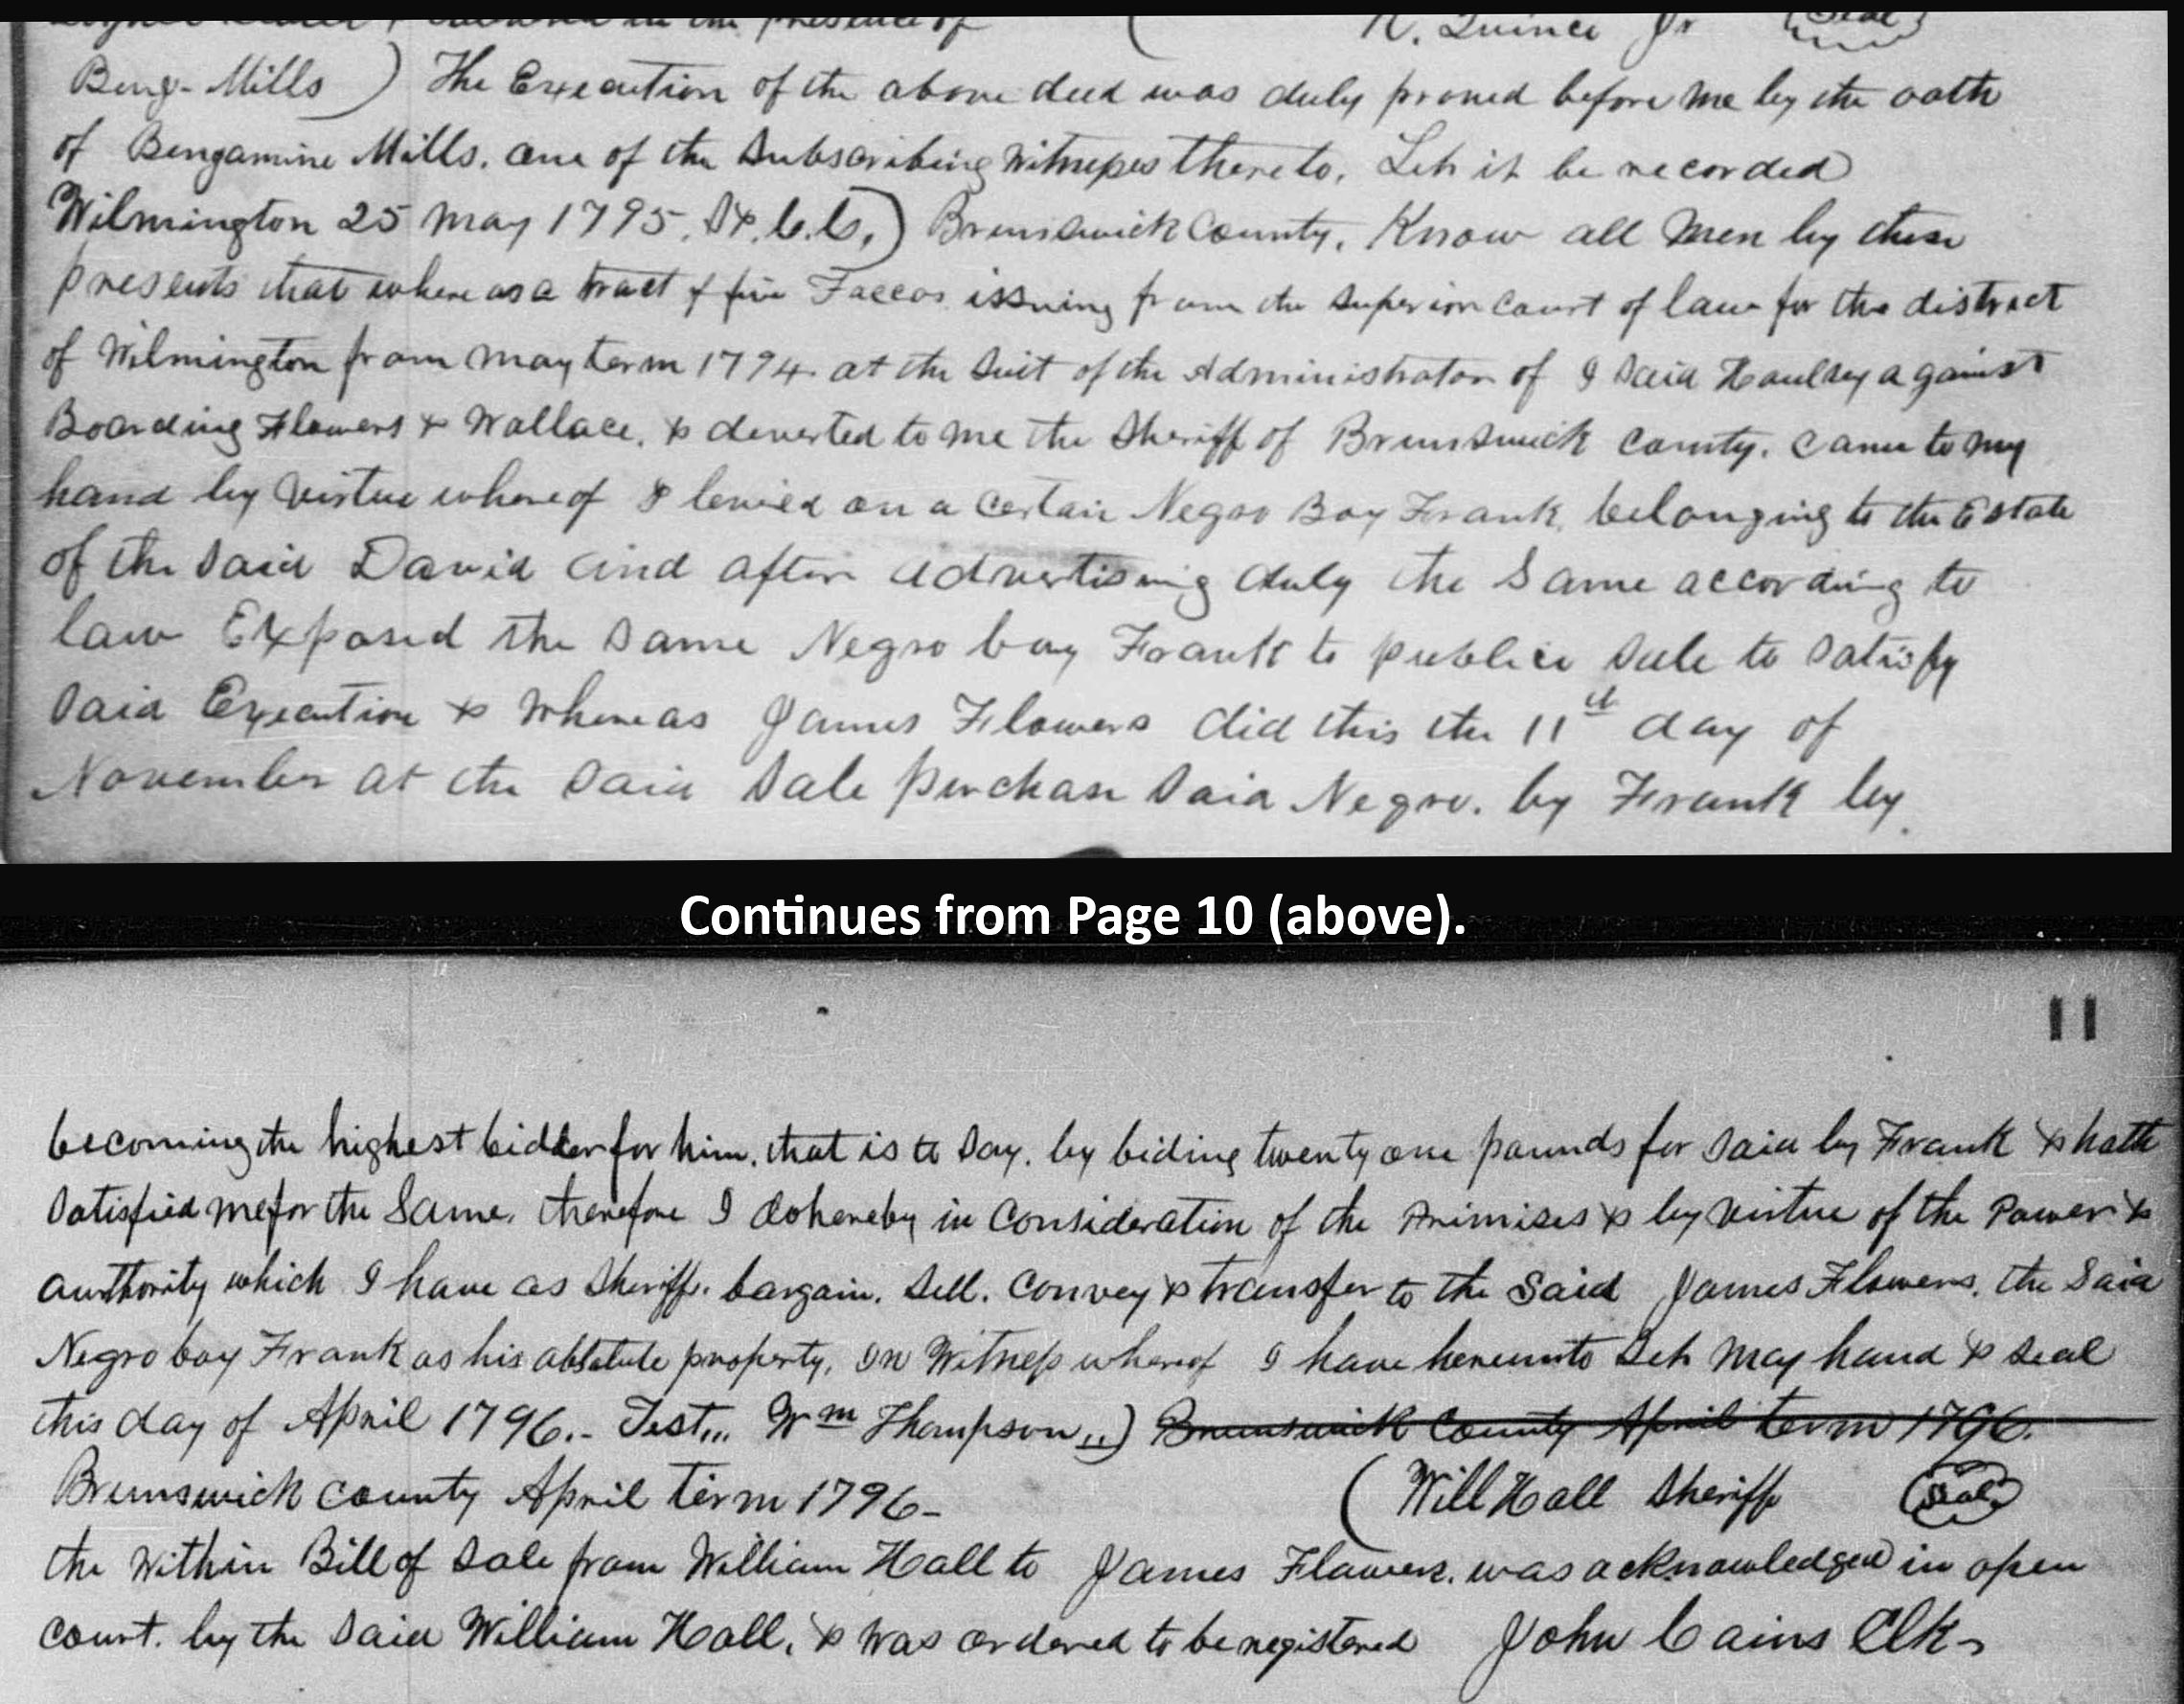 presence of
R. Quince Jr (Seal)
Benj- Mills ) The Execution of the above deed was duly proned before me by the oath
of Bengamine Mills. one of the Subscribing Witnesses thereto. Let it be recorded
Wilmington 25 May 1795. Brunswick County. Know all Men by these
presents that where as a tract of five Faccos issuing from the Superior Court of law for the district
of Wilmington from may term 1794 at the Suit of the Administrator of I Said against
Boarding Flowers & Wallace, & deverted to me the Sheriff of Brunswick county. came to my
hand by virtue whereof I levied on a certain Negro Boy Frank, belonging to the Estate
of the Said David and after advertising duly the Same according to
law Exposed the Same Negro boy Frank to publice Sale to Satisfy
Said Execution & Whereas James Flowers did this the 11th day of
November at the Said Sale purchase Said Negro. by Frank by
Continues from Page 10 (above).
11
becoming the highest bidder for him, that is to Say. by biding twenty one pounds for Said by Frank & hath
Satisfied me for the Same. therefore I do hereby in Consideration of the Primises & by virtue of the Power &
authority which I have as Sheriff. bargain. Sell. Convey & transfer to the Said James Flowers. the Said
Negro boy Frank as his absolute property. In Witness whereof I have hereunto Set May hand & Seal
this day of April 1796.- Test... Wm Thompson ..) Brunswick County April term 1796.
Brunswick County April term 1796- (Will Hall Sheriff (Seal)
the Within Bill of Sale from William Hall to James Flowers. was acknowledged in open
Court. by the Said William Hall, & was ordered to be registered John Cains Clk-